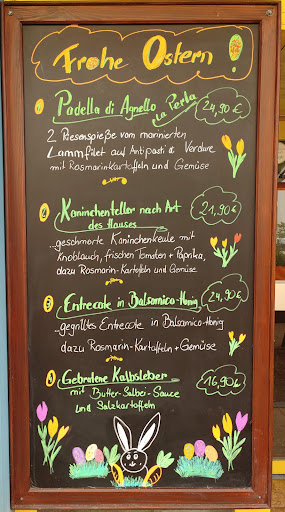 Frohe Ostern !
1 Padella di Agnello La Perla 24,90€
2 Riesenspieße vom marinierten
Lammfilet auf Antipasti di Verdure
mit Rosmarin-Kartoffeln und Gemüse
2 Kaninchenteller nach Art 21,90€
des Hauses
...geschmorte Kaninchenkeule mit
Knoblauch, frischen Tomaten + Paprika,
dazu Rosmarin-Kartoffeln und Gemüse
3 Entrecote in Balsamico-Honig 24,90€
...gegrilltes Entrecote in Balsamico-Honig
dazu Rosmarin-Kartoffeln + Gemüse
4 Gebratene Kalbsleber 16,90€
mit Butter-Salbei-Sauce
und Salzkartoffeln